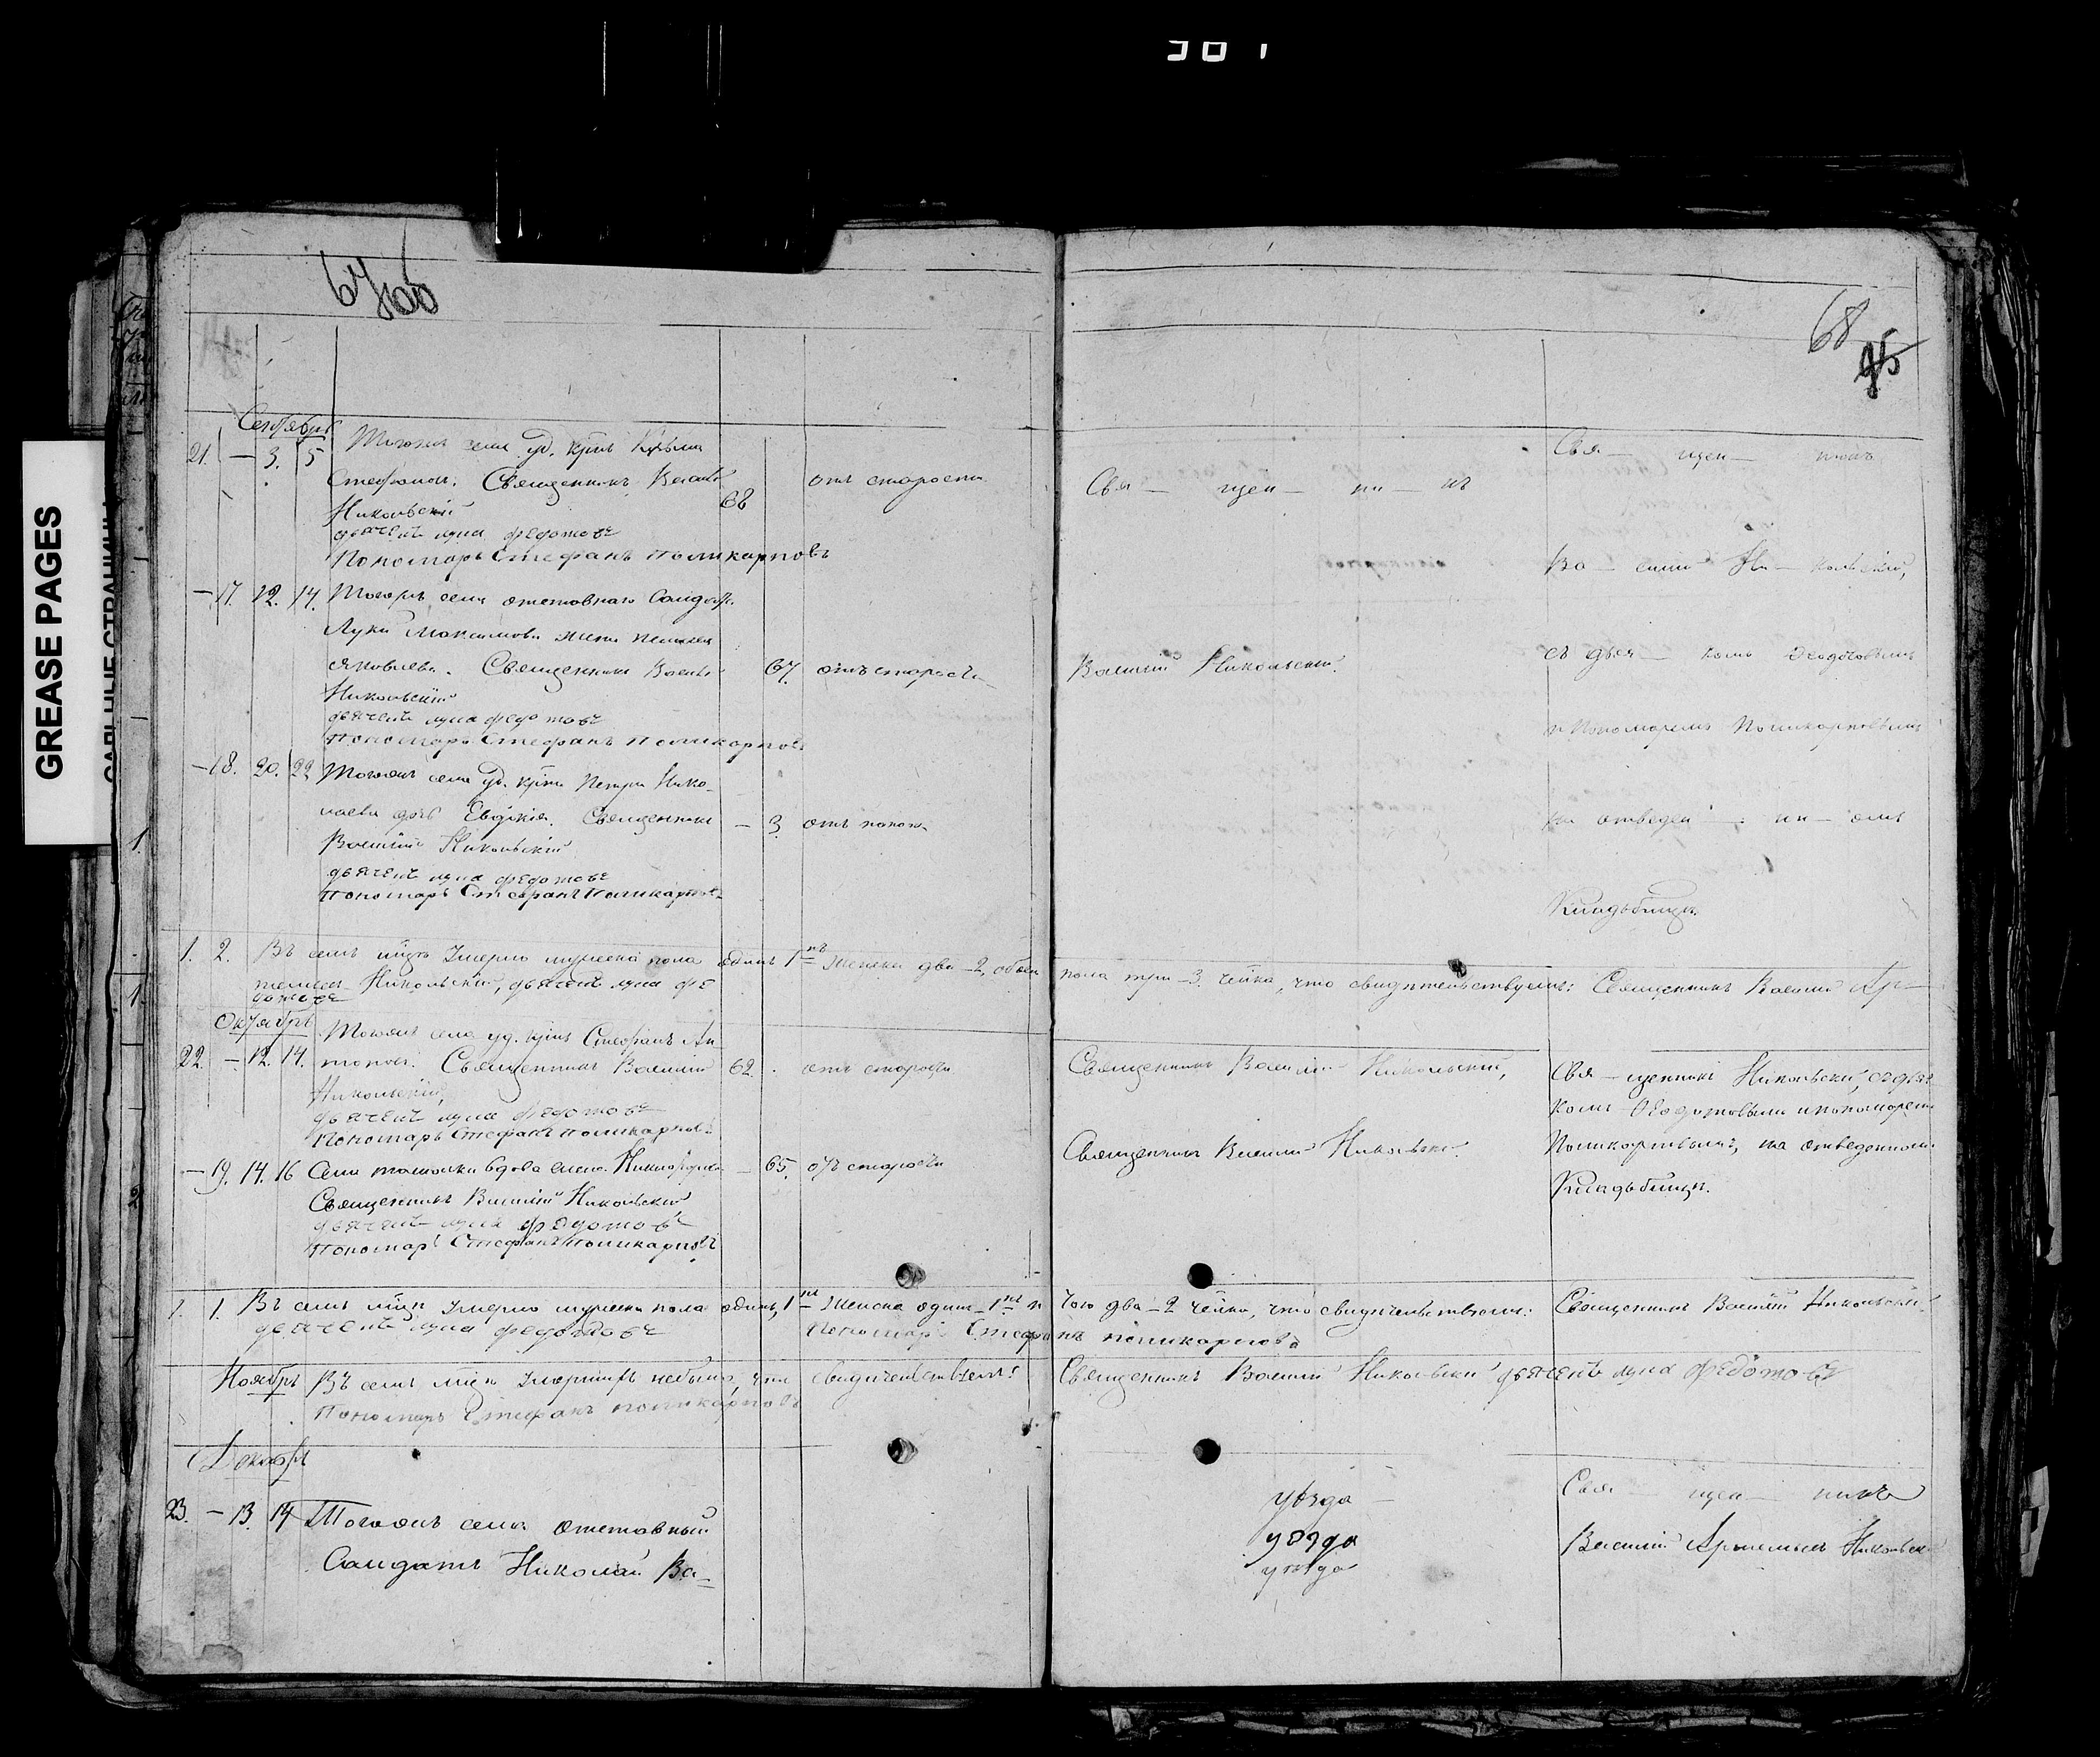 GREASE PAGES
68
Сентябрь
21. — 3. 5 Тогожъ села уд. крѣс. Кузьма
Стефановъ. Священникъ Василій 68 отъ старости
Никольскій
дьячекъ лука федотовъ
Пономарь Стефанъ Поликарповъ
— 17. 12. 14. Тогожъ села отставнаго Солдата
Луки Максимова жена
Яковлева. Священникъ Василій 67. отъ старости
Никольскій
дьячекъ лука федотовъ
Пономарь Стефанъ Поликарповъ
— 18. 20. 22 Тогожъ села уд. крѣс. Петра Нико-
лаева дочь Евдокія. Священникъ — 3. отъ поноса
Василій Никольскій
дьячекъ лука федотовъ
Пономарь Стефанъ Поликарповъ
Свя — щен — ни — къ
Василій Никольскій.
Свя — щен — никъ
Ва — силій Ни — кольскій,
съ дья — комъ Феодотовымъ
и Пономаремъ Поликарповымъ
на отведен — ни — омъ
Кладбищѣ.
1. 2. Въ семъ м-цѣ Умерло мужеска пола одинъ 1 женска два — 2, обоего пола три — 3. чейка, что свидѣтельствуемъ: Священникъ Василій Ар-
темьевъ Никольскій, дьячекъ лука фе
дотовъ
Октябрь
Тогожъ села уд. крѣс. Стефанъ Ан
22. — 12. 14. тоновъ. Священникъ Василій 62. отъ старости.
Никольскій,
дьячекъ лука федотовъ
Пономарь Стефанъ Поликарповъ
— 19. 14. 16 Села вдова — 65. отъ старости
Священникъ Василій Никольскій
дьячекъ лука федотовъ
Пономарь Стефанъ Поликарповъ
Священникъ Василій Никольскій,
Священникъ Василій Никольскій.
Свя — щенникъ Никольскій, съ дьяч
комъ Феодотовымъ и пономаремъ
Поликарповымъ, на отведенномъ
Кладбищѣ.
1. 1. Въ семъ м-цѣ Умерло мужеска пола одинъ, 1 Женска одинъ — 1 и того два — 2 чейка, что свидѣтельствуемъ: Священникъ Василій Никольскій
дьячекъ лука федотовъ Пономарь Стефанъ поликарповъ
Ноябрь Въ семъ м-цѣ Умершихъ небыло, что свидѣтельствуемъ: Священникъ Василій Никольскій дьячекъ лука федотовъ
Пономарь Стефанъ поликарповъ
Декабрь
23. — 13. 14 Тогожъ села отставный
Солдатъ Николай Ва-
уѣзда
уѣзда
уѣзда
Свя — щен — никъ
Василій Артемьевъ Никольскій